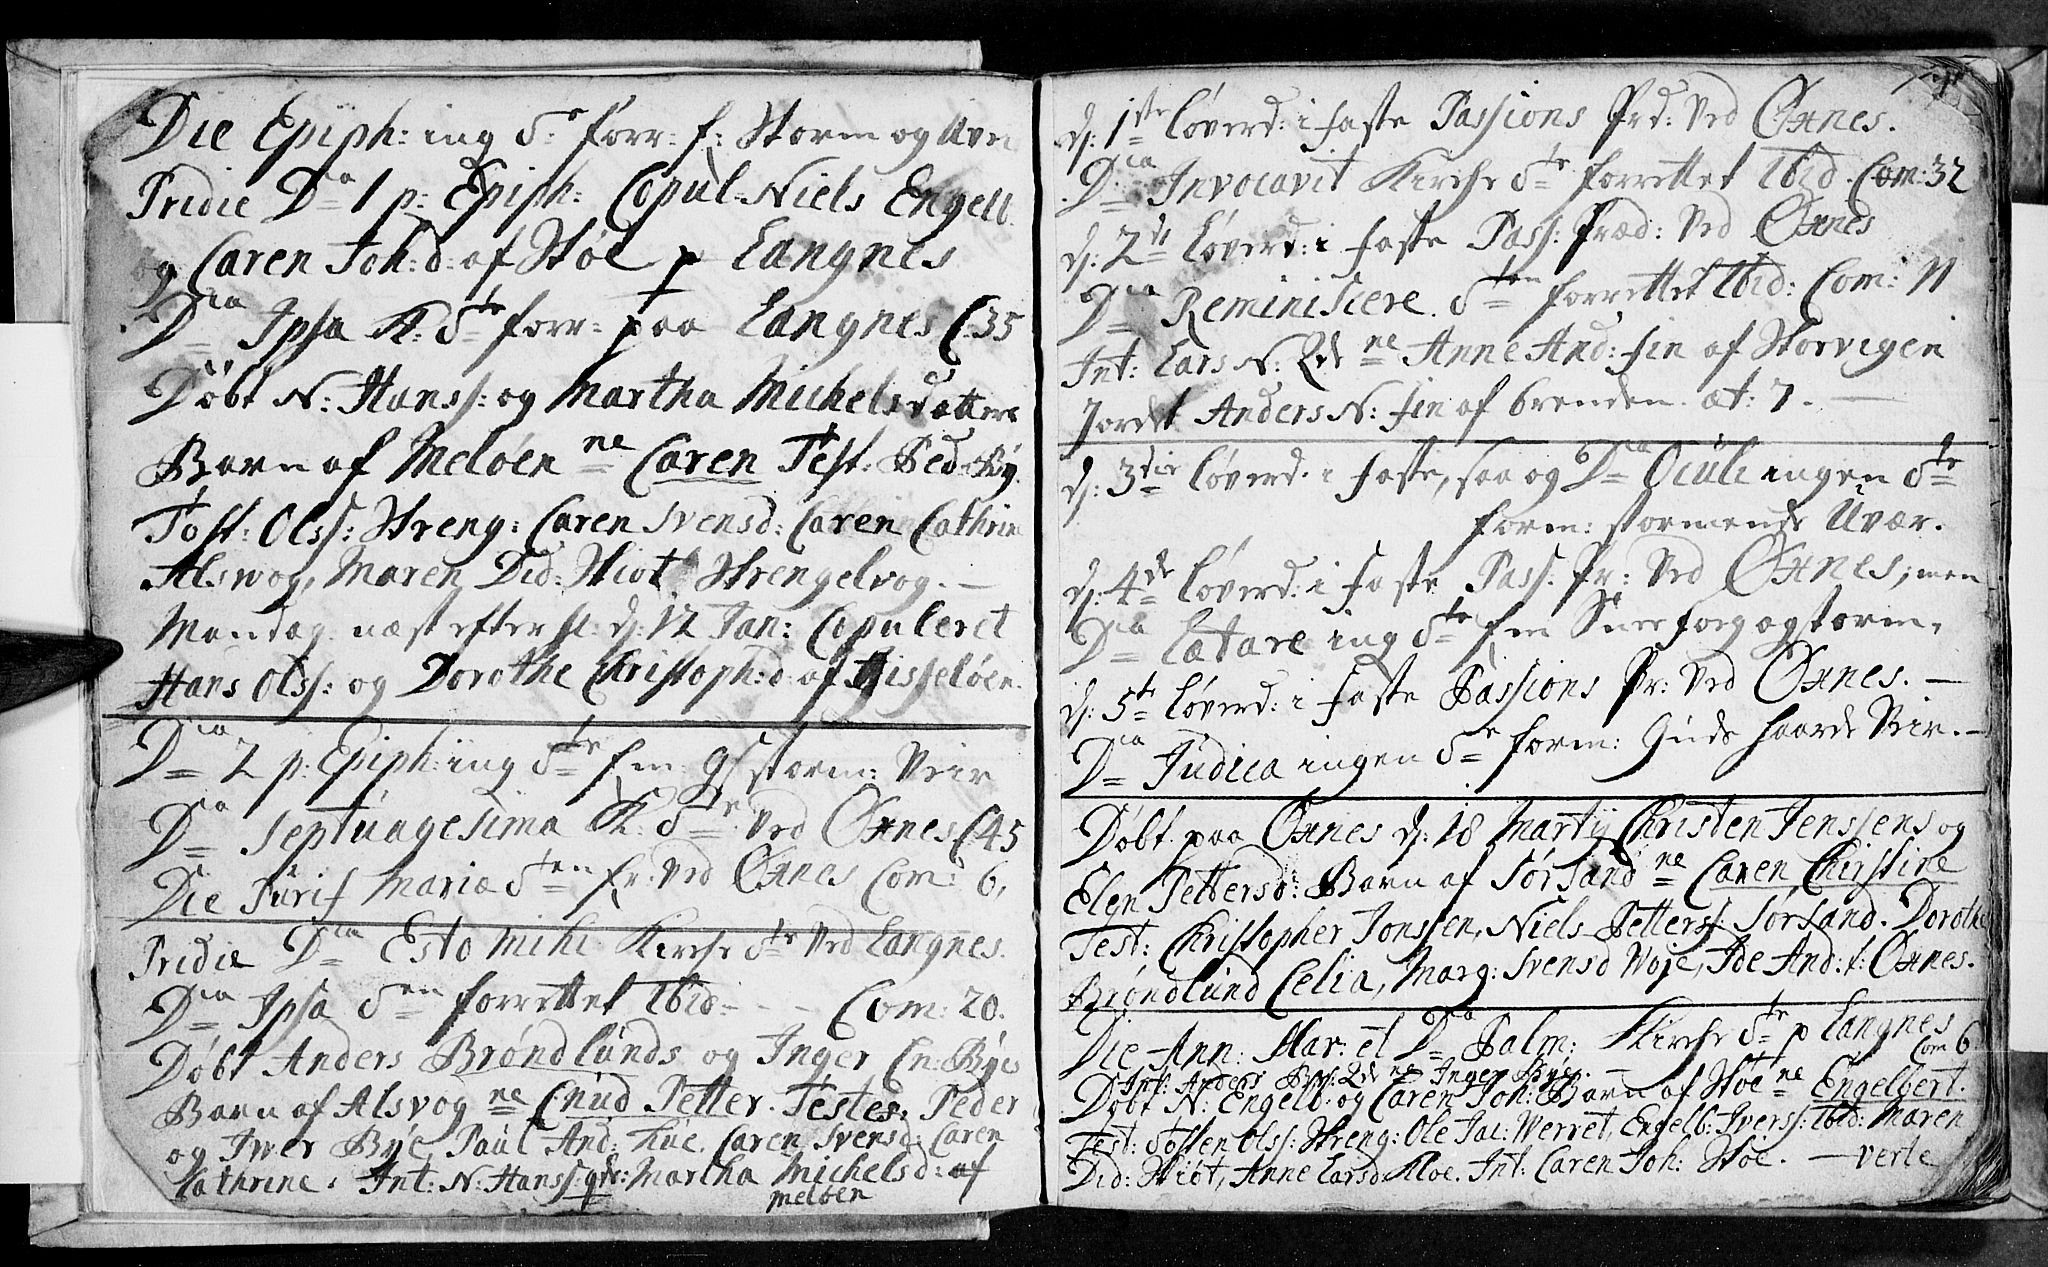 Die Epiph: ing S:e forr: f: Storm og Uvei
Pridie D:a 1 p: Epiph: Copul: Niels Engelb.
og Caren Joh:d: af Støe p Langnes
D:ica Ipsa K: S:te forr: paa Langnes C:35
Døbt N: Hanss: og Martha Michelsdatters
Barn af Meløen ne Caren Test: Ped: Bÿ
Tost: Olss: Streng: Caren Svensd: Caren Cathrin
Alswog, Maren Did: Skiøt Strengelvog. —
Mandag næst efter sl: d: 12 Jan: Copuleret
Hans Olss: og Dorothe Christoph:d: af Tisseløen.
D:ica 2 p: Epiph: ing S:te f:m: storm: Veir
D:ica Septuagesima K: S:te Ved Øxnes C 45
Die Purif Mariæ S:ten fr: Ved Øxnes Com: 6,
Pridie D:ica Esto mihi Kirche S:te Ved Langnes.
D:ica Ipsa S:en forrettet Ibid: - - - Com: 20.
Døbt Anders Brøndlunds og Inger Cn: Bÿes
Barn af Alsvog ne Cnud Petter. Testes. Peder
og Iver Bÿe, Paul And: Kue. Caren Svensd: Caren
Kathrine. Int: N: Hanss: qv: Martha Michelsd: af
Meløen
d: 1ste Løverd: i faste Passions Prd: Ved Øxnes.
D:ica Invocavit Kirche S:te forrettet Ibid. Com: 32
d: 2d: Løverd: i faste Pass: Præd: Ved Øxnes
D:ica Reminiscere. S:ten forrettet Ibid: Com: 11
Int: Lars N: 2d: ne Anne And: fin af Storvigen
Jordet Anders N: fin af brenden. æt: 7. —
d: 3die Løverd. i faste, saa og D:ica Oculi ingen S:te
form: stormende Uvær.
d: 4de Løverd: i faste Pass: Pr: Ved Øxnes; men
D:ica Lætare ing S:te f:m Sneefog og storm,
d: 5te Løverd: i faste Passions Pr: Ved Øxnes. —
D:ica Judica ingen S:e form: Guds haarde Veir. —
Døbt paa Øxnes d: 18 Martij Christen Jenssens og
Elen Pettersd: Barn af Sørsand ne Caren Chirstine
Test: Christopher Jonssen, Niels Petterss: Sørsand. Dorothe
Brøndlund Celia, Marg: Svensd Woje, Ide And:f: Øxnes.
Die Ann: Mar: et D:a Palm: Kirche S:te p Langnes
Com 6
Int: Anders Br: 2d ne Inger Bye. —
Døbt N: Engelb: og Caren Joh: Barn af Støe ne Engelbert.
Test: Tosten Olss: Streng: Ole Jac: Werret, Engelb: Iverss: Ibid: Maren
Did: Skiøt, Anne Larsd Kloe. Int: Caren Joh: Støe. — verte